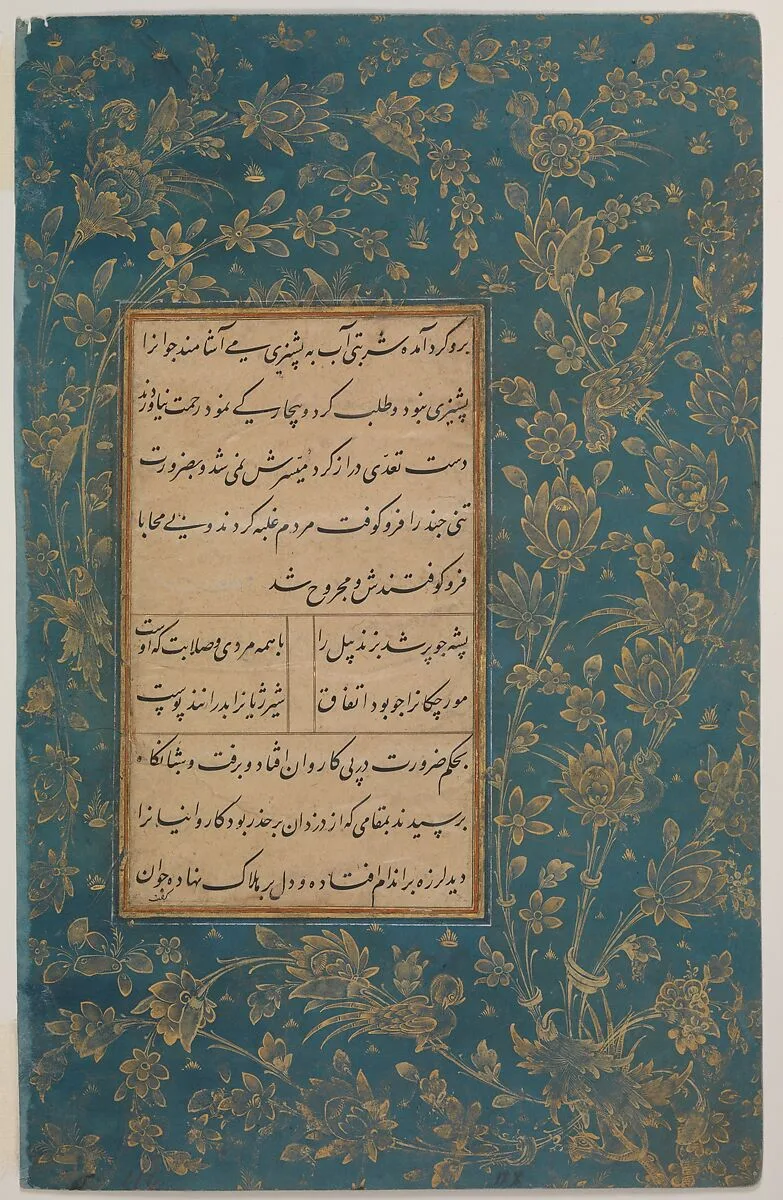 برو کرد آمده شربتی آب به پشیزی می آشامند جوانرا
پشیزی نبود و طلب کرد و بیچارکی نمود رحمت نیاوردند
دست تعدّی دراز کرد میّسرش نمی شد و بضرورت
تنی جند را فرو کوفت مردم غلبه کردند و بی محابا
فرو کوفتندش و مجروح شد
پشه جو پر شد بزند پیل را با همه مردی و صلابت که اوست
مورچکانرا جو بود اتفاق شیر ژیانرا بدرانند پوست
بحکم ضرورت در پی کاروان افتاد و برفت و شبانکاه
برسیدند بمقامی که از دزدان بر حذر بود کاروانیانرا
دید لرزه بر اندام افتاده و دل بر هلاک نهاده جوان
کفت